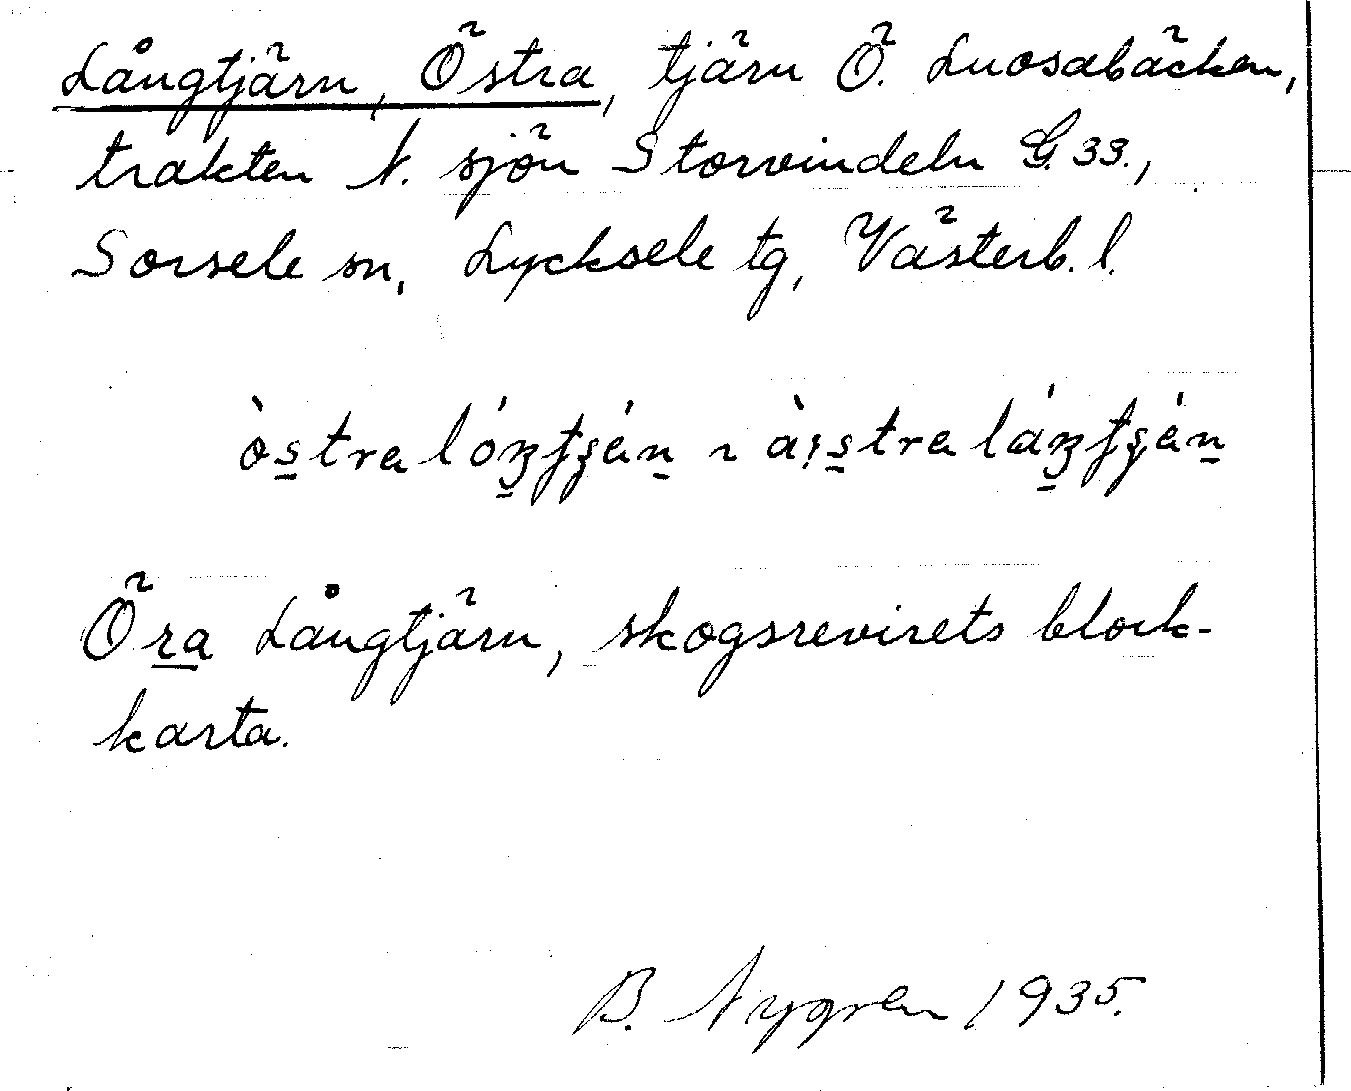 Långtjärn, Östra, tjärn Ö. Luosabäcken,
trakten N. sjön Storvindeln G. 33.,
Sorsele sn, Lycksele tg, Västerb. l.
òs̲tra
Öra Långtjärn, skogsrevirets block-
karta.
B. Nygren 1935.